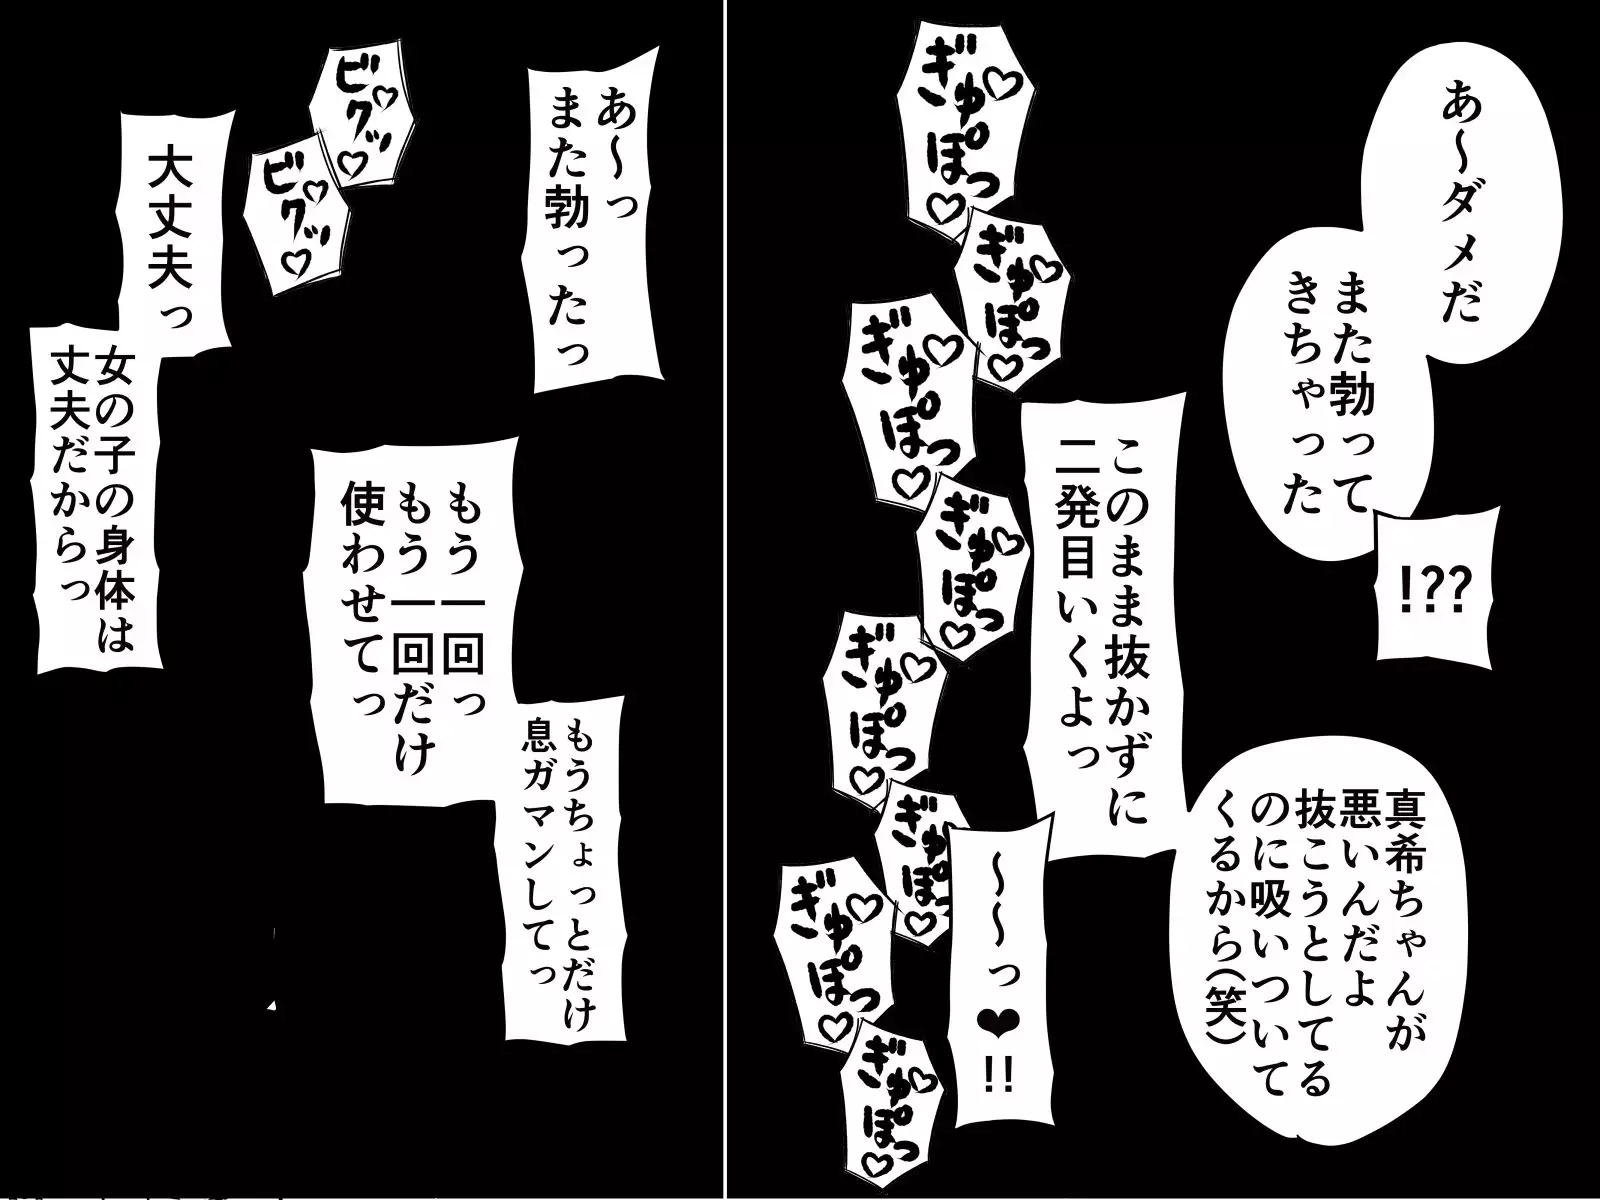 あ〜ダメだ
また勃って
きちゃった
!??
真希ちゃんが
悪いんだよ
抜こうとしてる
のに吸いついて
くるから(笑)
このまま抜かずに
二発目いくよっ
〜〜っ❤!!
ぎゅぽっ♡
ぎゅぽっ♡
ぎゅぽっ♡
ぎゅぽっ♡
ぎゅぽっ♡
ぎゅぽっ♡
ぎゅぽっ♡
ぎゅぽっ♡
あ〜っ
また勃ったっ
もうちょっとだけ
息ガマンしてっ
もう一回っ
もう一回だけ
使わせてっ
ビクッ♡
ビクッ♡
大丈夫っ
女の子の身体は
丈夫だからっ